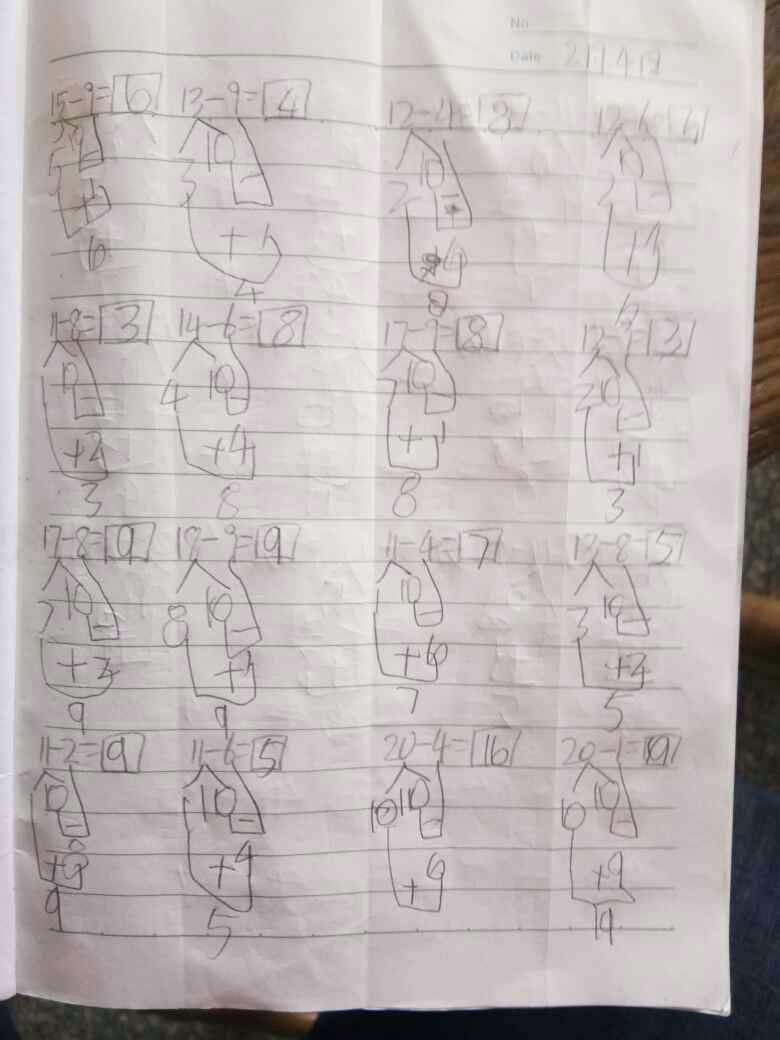 No
Date
15-9=6 13-9=4 12-4=8
10 10
3 - 2 -
+1 +4
6 4 8
11-8=3 14-6=8 17-9=8 12-9=3
10 4 10 7 10 2 10
- - - -
+2 +4 +1 +1
3 8 8 3
17-8=9 18-9=9 11-4=7 13-8=5
7 10 8 10 10 3 10
- - - -
+2 +1 +6 +2
9 9 7 5
11-2=9 11-6=5 20-4=16 20-1=19
10 10 10 10 10 10
- - - -
+8 +4 +6 +9
9 5 19